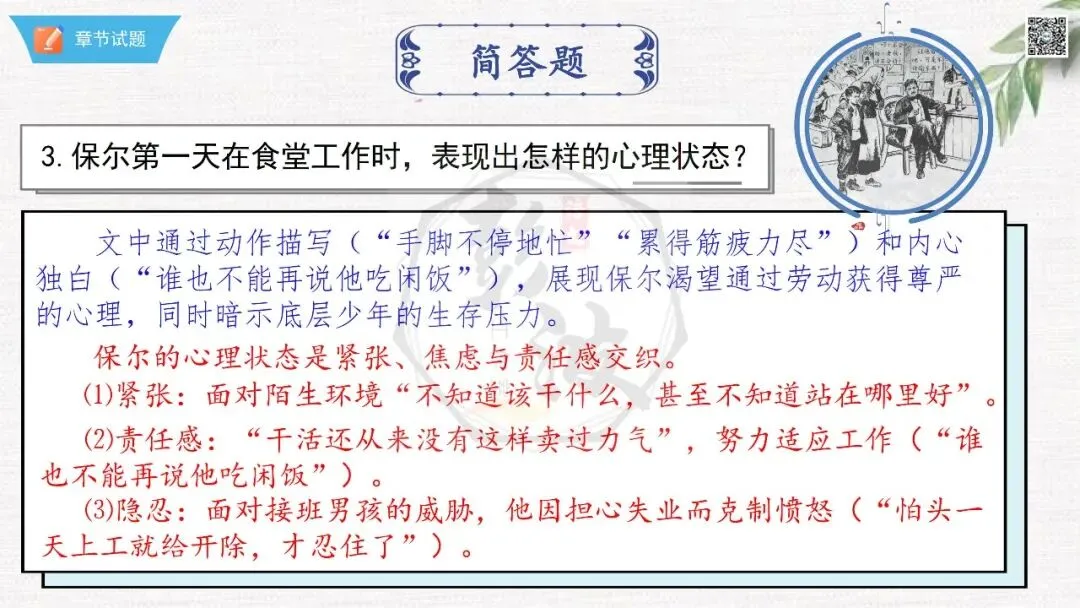 章节试题
简答题
3.保尔第一天在食堂工作时，表现出怎样的心理状态？
文中通过动作描写（“手脚不停地忙”“累得筋疲力尽”）和内心
独白（“谁也不能再说他吃闲饭”），展现保尔渴望通过劳动获得尊严
的心理，同时暗示底层少年的生存压力。
保尔的心理状态是紧张、焦虑与责任感交织。
⑴紧张：面对陌生环境“不知道该干什么，甚至不知道站在哪里好”。
⑵责任感：“干活还从来没有这样卖过力气”，努力适应工作（“谁
也不能再说他吃闲饭”）。
⑶隐忍：面对接班男孩的威胁，他因担心失业而克制愤怒（“怕头一
天上工就给开除，才忍住了”）。